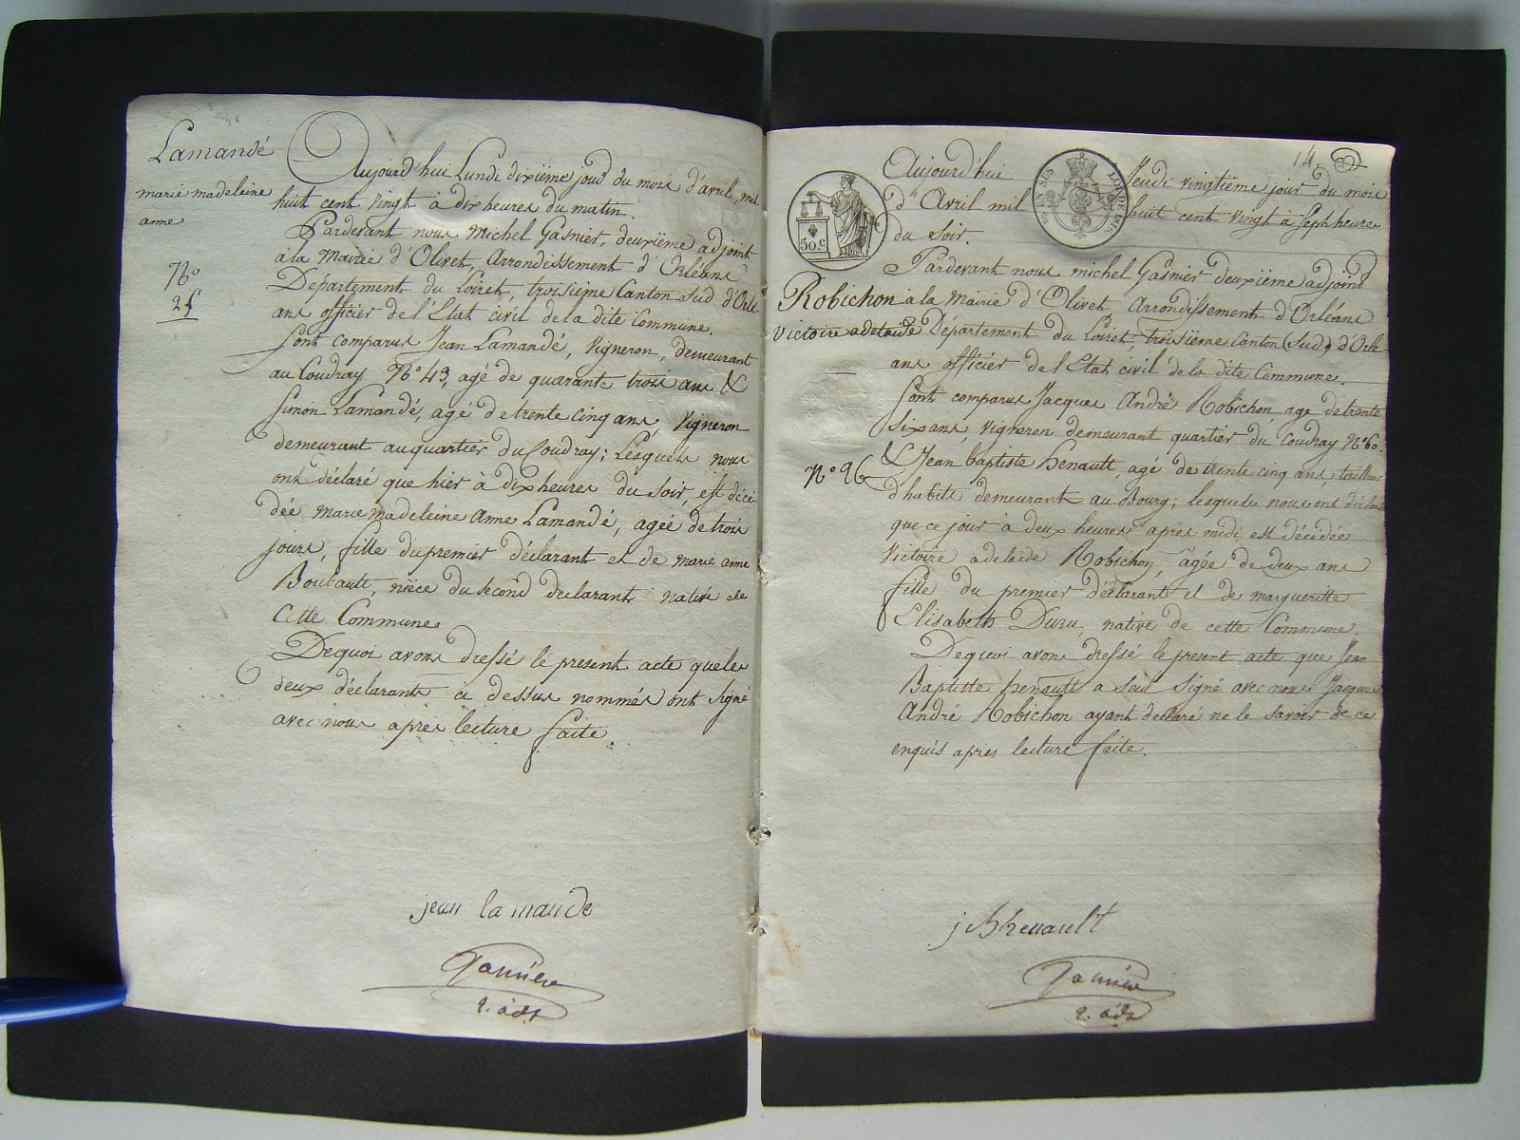 Lamandé
marie madeleine
anne
N.o
25
Aujourd'hui Lundi dixième jour du mois d'avril, mil
huit cent vingt à dix heures du matin.
Pardevant nous Michel Gasnier, deuxième adjoint
à la Mairie d'Olivet, Arrondissement d'Orléans
Département du Loiret, troisième Canton Sud d'Orlé
ans officier de l'Etat civil de la dite Commune.
Sont comparus Jean Lamandé, Vigneron, demeurant
au Coudray N.o 43, agé de quarante trois ans &
Simon Lamandé, agé de trente cinq ans, Vigneron
demeurant au quartier du Coudray; Lesquels nous
ont déclaré que hier à dix heures du soir, est décé
dée marie madeleine Anne Lamandé, agée de trois
jours, fille du premier déclarant et de marie anne
Boubault, nièce du second declarant native de
Cette Commune
De quoi avons dressé le present acte que les
deux déclarants ci dessus nommés ont signé
avec nous après lecture faite.
jean lamande
Gasnier
2. adt
14
50 c
Aujourd'hui Jeudi vingtième jour du mois
d'Avril mil huit cent vingt à Sept heures
du Soir.
Pardevant nous michel Gasnier deuxième adjoint
Robichon à la Mairie d'Olivet Arrondissement d'Orléans
Victoire adelaide Département du Loiret, troisième Canton (Sud) d'Orlé
ans officier de l'Etat civil de la dite Commune.
Sont comparus Jacques André Robichon, age de trente
six ans, vigneron demeurant quartier du Coudray N.o 60.
N.o 26
& Jean baptiste henault, agé de trente cinq ans, tailleur
d'habits demeurant au Bourg; lesquels nous ont déclaré
que ce jour à deux heures après midi est décédée
Victoire adelaide Robichon, agée de deux ans
fille du premier déclarant et de margueritte
Elisabeth Duru, native de cette Commune.
De quoi avons dressé le present acte que Jean
Baptiste henault a seul signé avec nous Jacques
André Robichon ayant déclaré ne le savoir de ce
enquis apres lecture faite.
jbhenault
Gasnier
2. adt